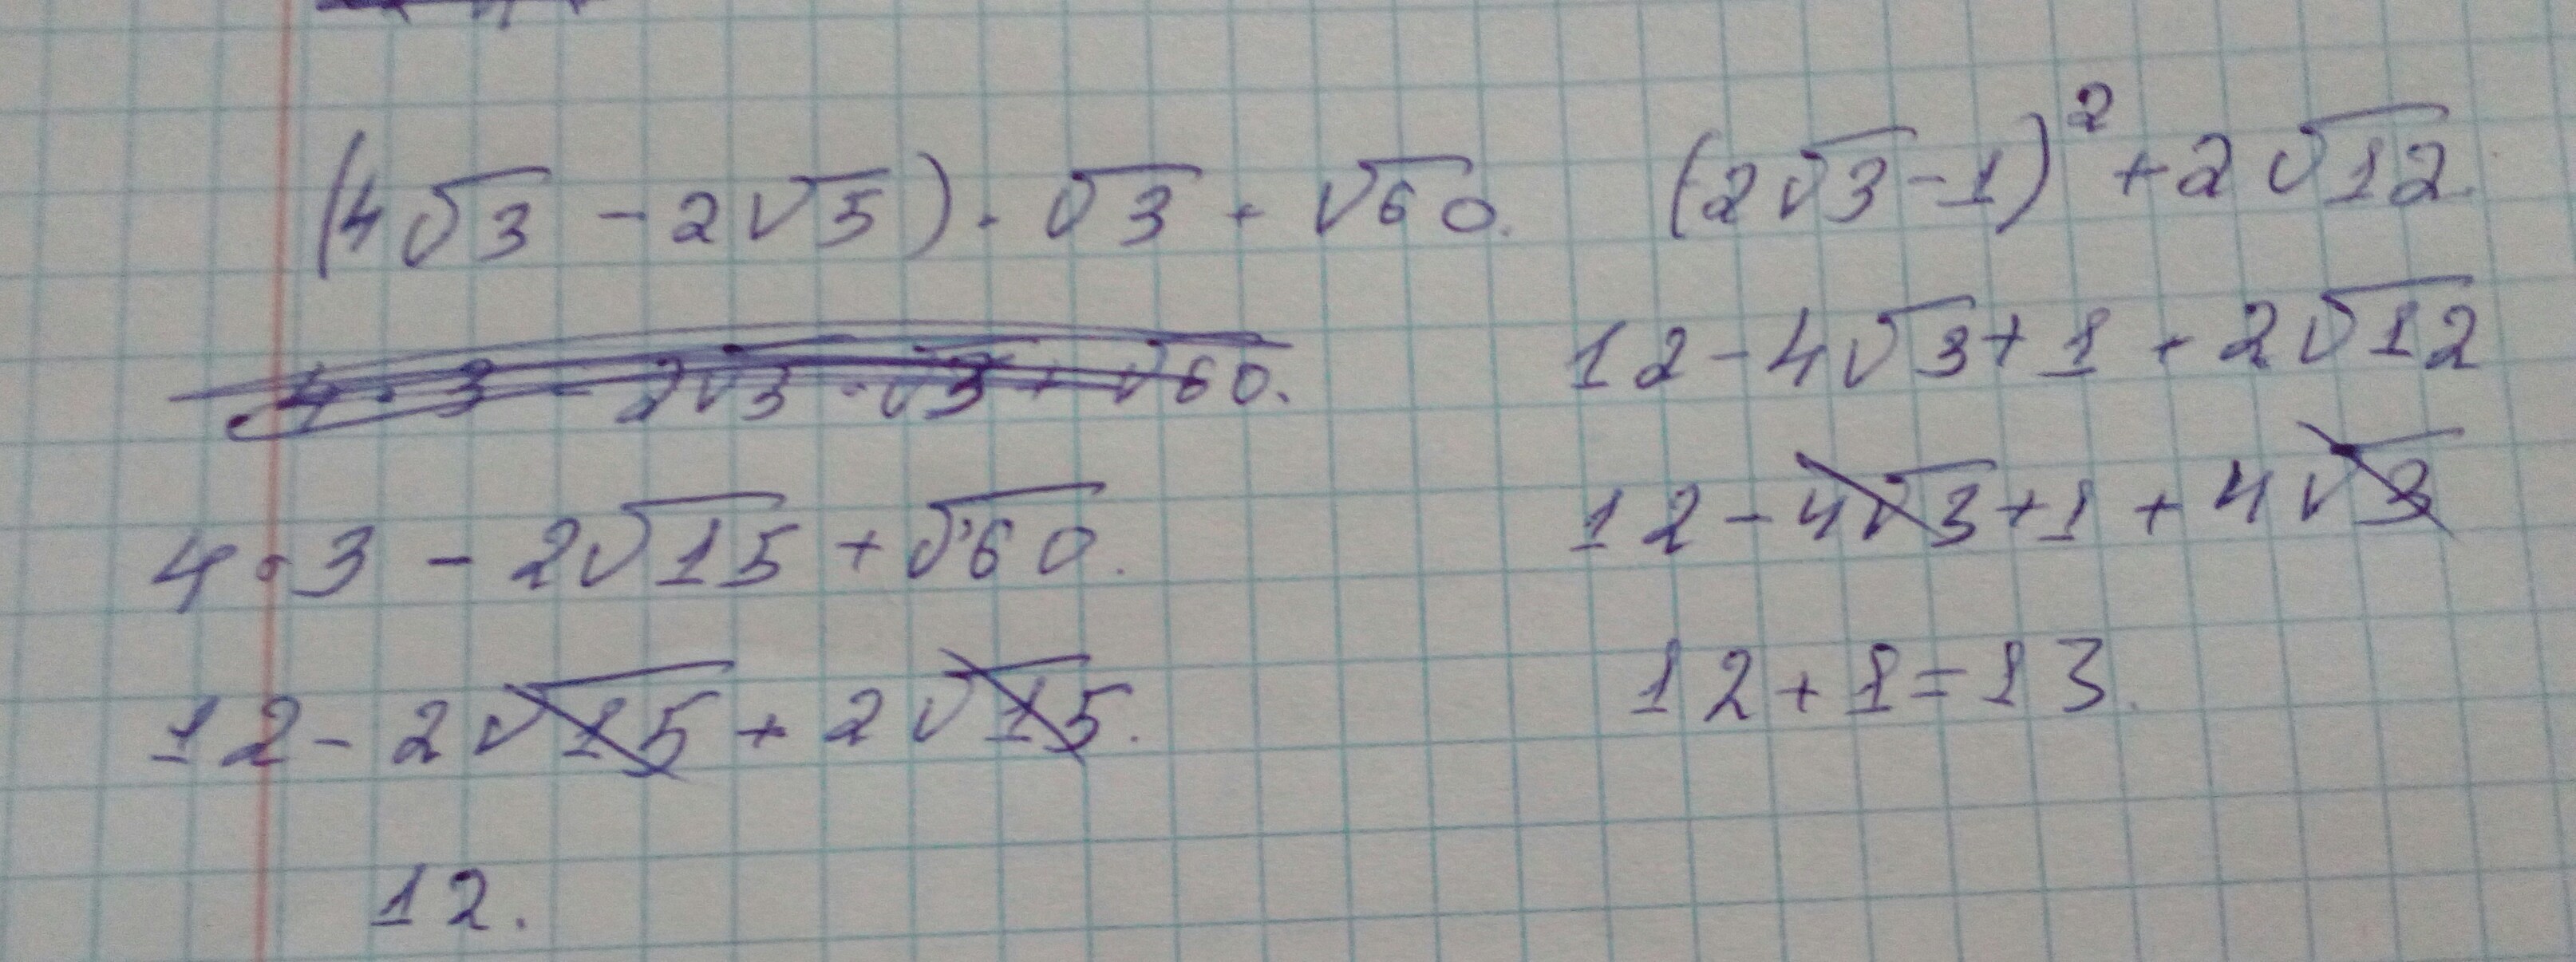 (4√3 - 2√5) · √3 + √60.
4 · 3 - 2√3 · √3 + √60.
4 · 3 - 2√15 + √60.
12 - 2√15 + 2√15.
12.
(2√3 - 1)² + 2√12.
12 - 4√3 + 1 + 2√12
12 - 4√3 + 1 + 4√3
12 + 1 = 13.